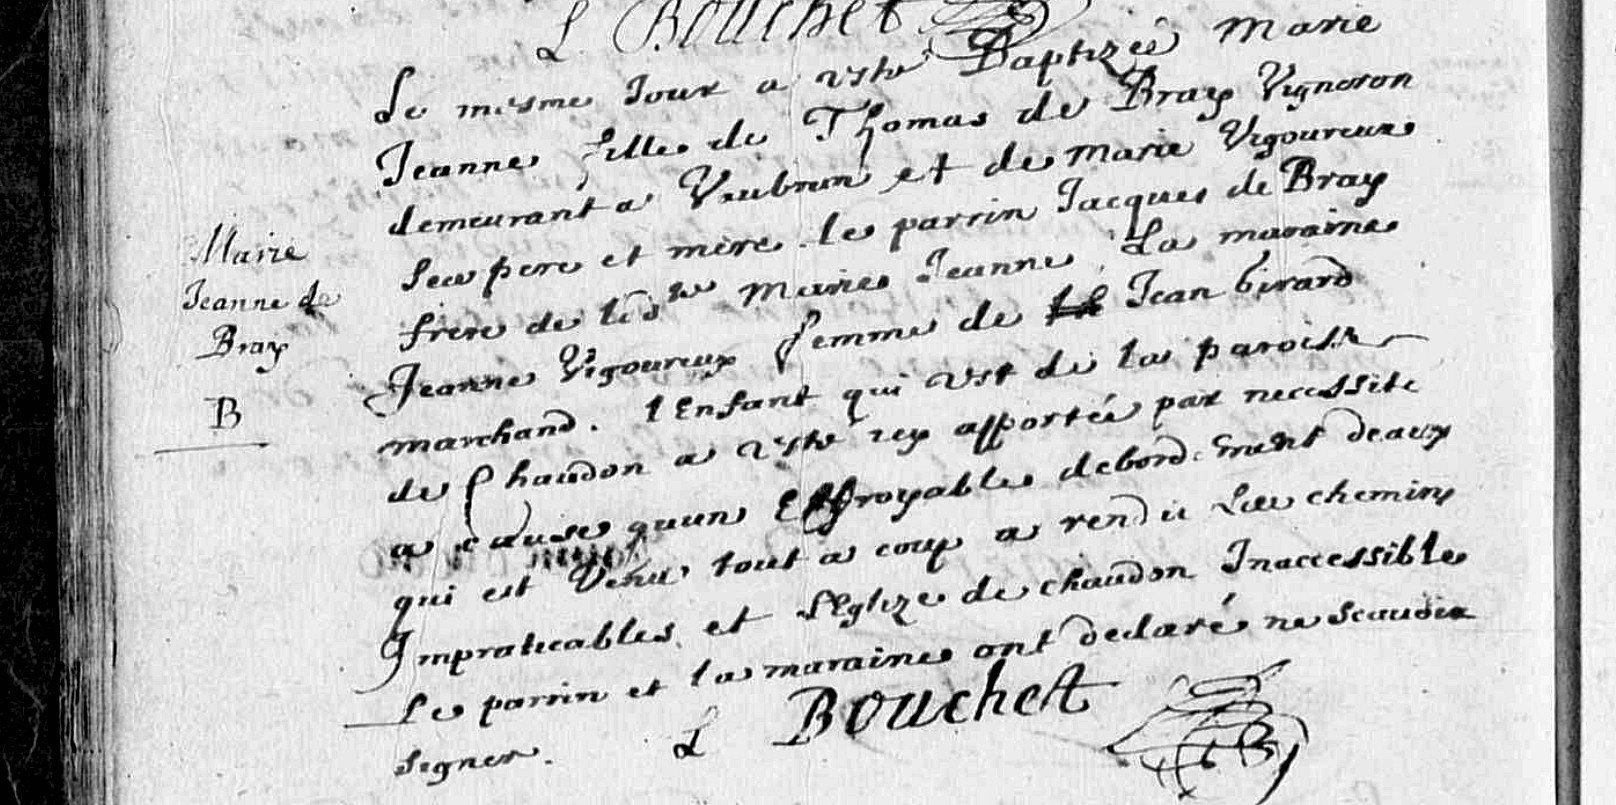 L Bouchet
Le mesme Jour a este Baptizeé Marie
Jeanne fille de Thomas de Bray Vigneron
demeurant a Vaubrun et de Marie Vigoureux
ses pere et mere. le parrin Jacques de Bray
frere de lad te Marie Jeanne. La maraine
Jeanne Vigoureux femme de Jean Girard
marchand. l Enfant qui est de la paroisse
de Chaudon a este icy apportée par necessité
a cause quun Effroyable debordement deaux
qui est venu tout a coup a rendu Les chemins
Impraticables et l'Eglize de chaudon Inaccessible
Le parrin et la maraine ont declaré ne scauoir
signer. L Bouchet
Marie
Jeanne de
Bray
B